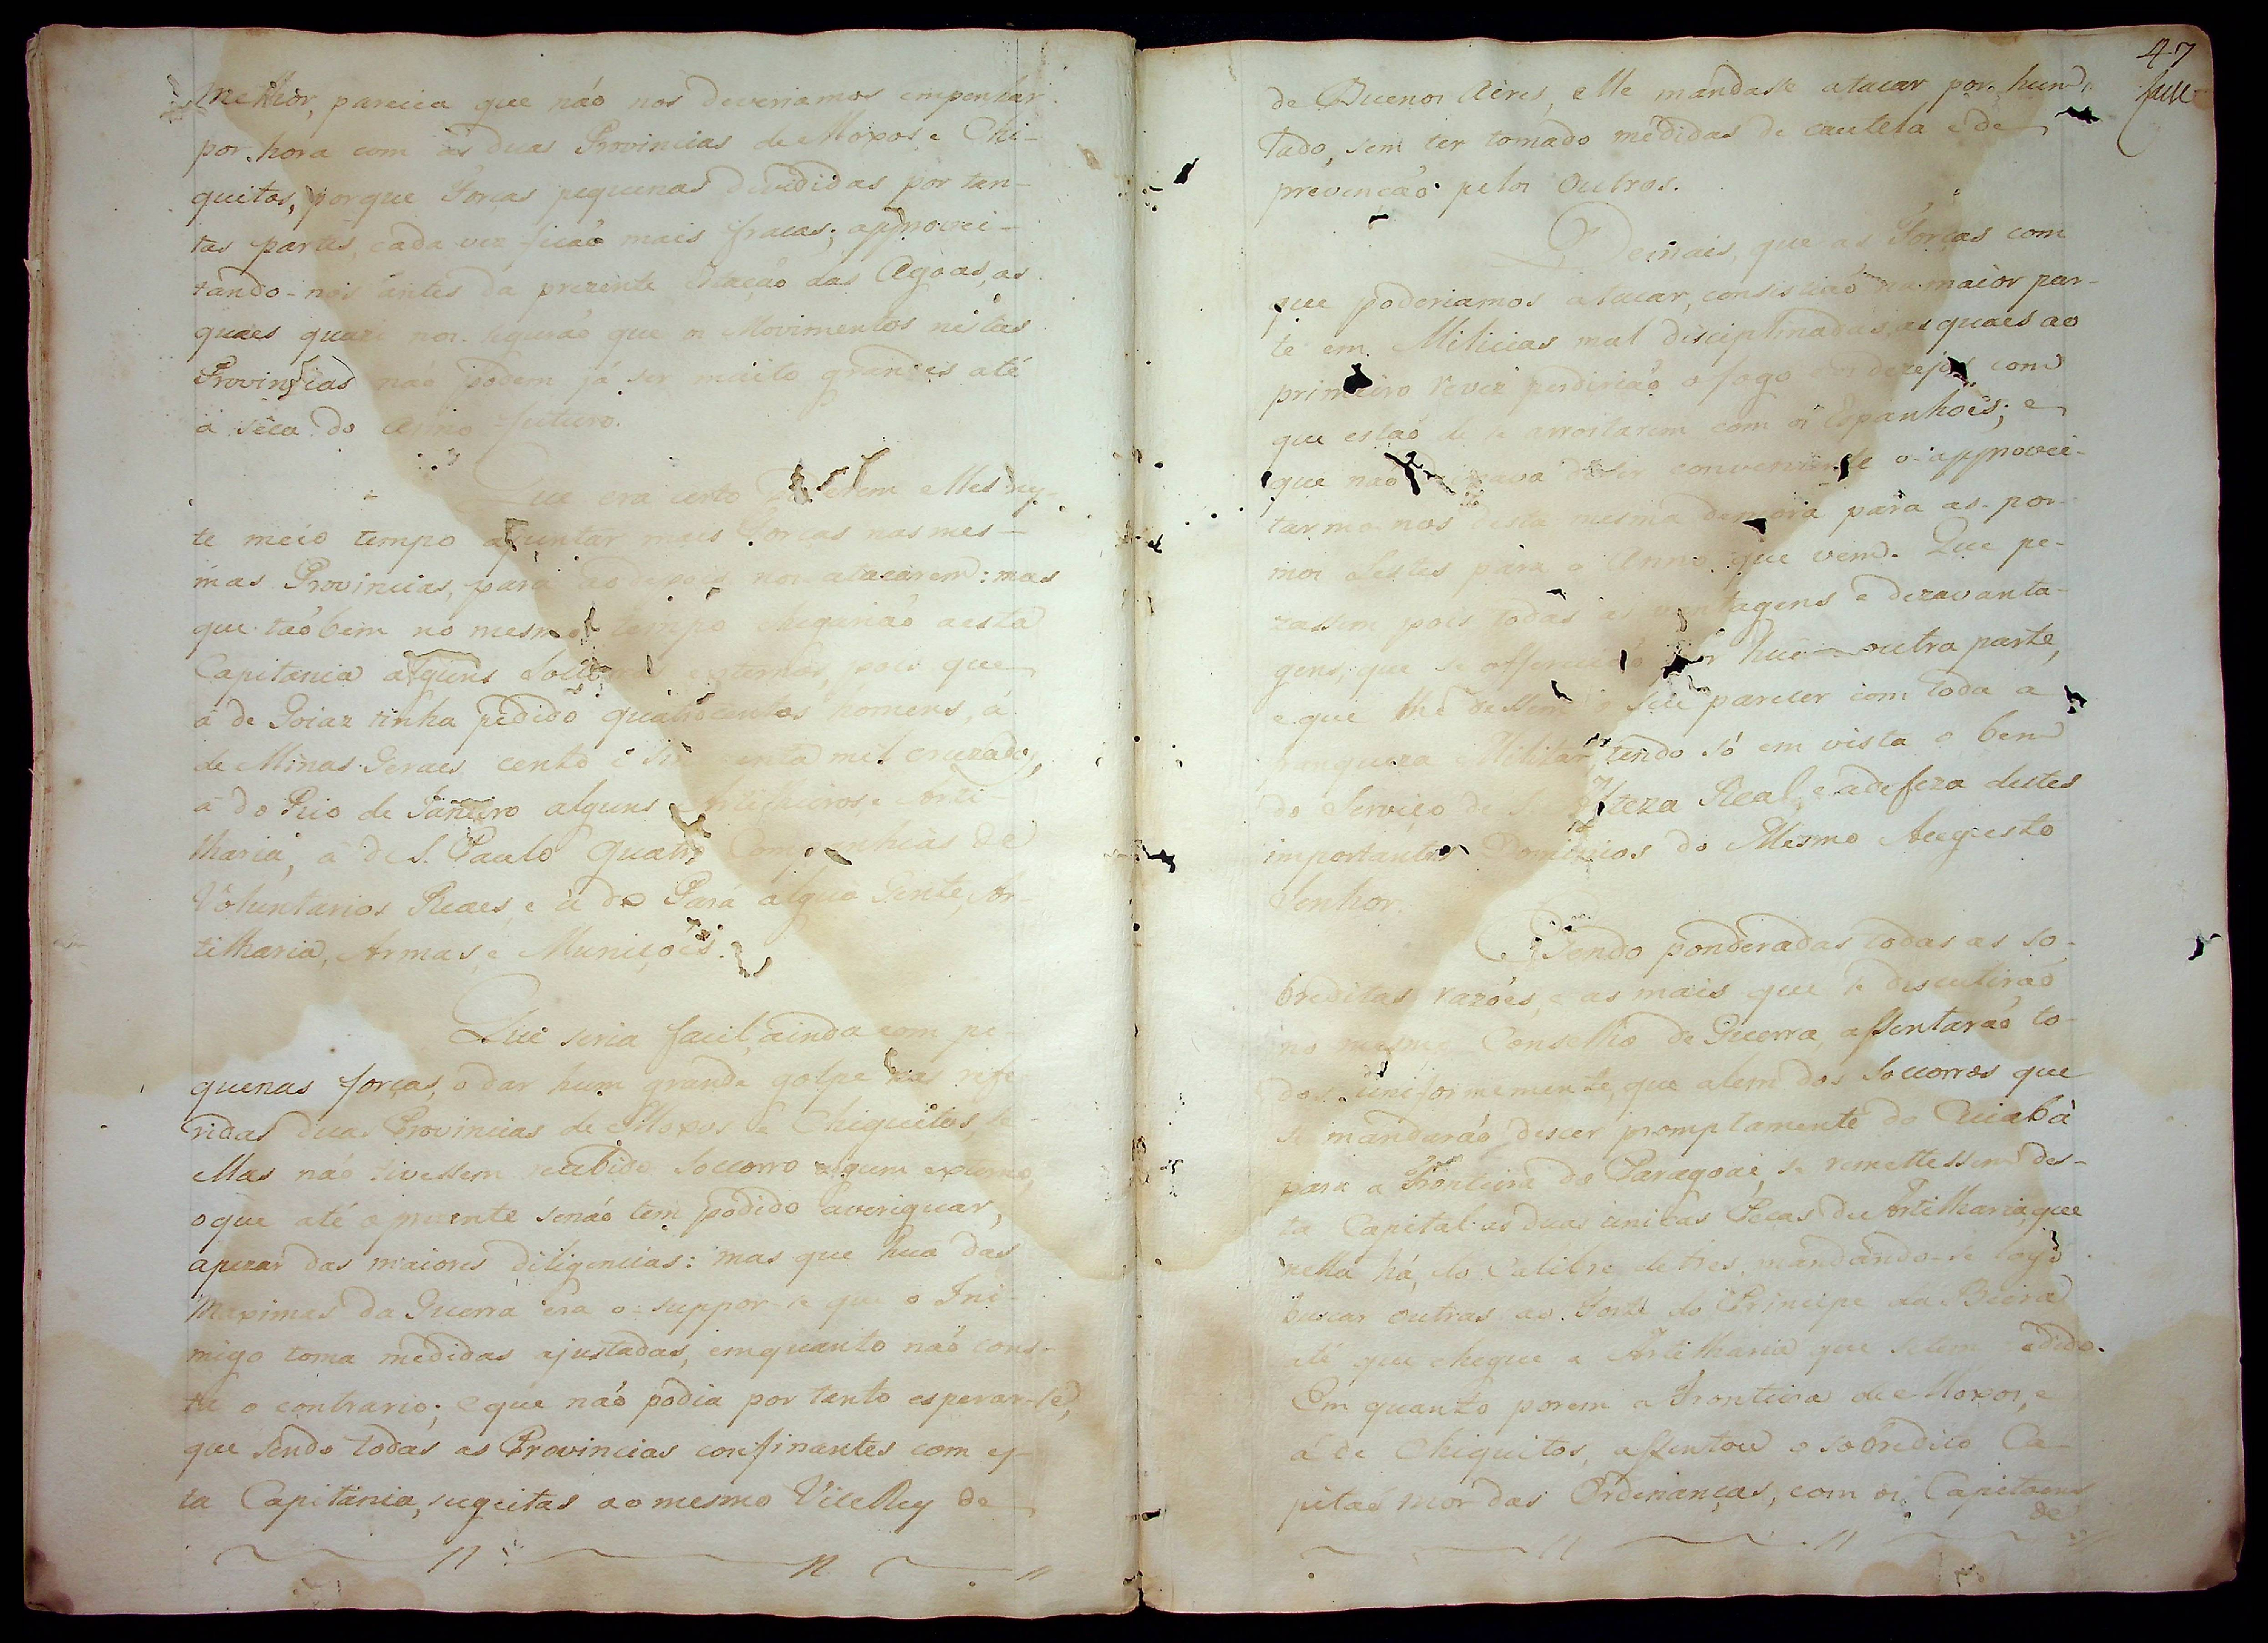 melhor, parecia que não nos deveriamos empenhar
por hora com as duas Provincias de Moxos, e Chi-
quitos, porque Forças pequenas devididas por tan-
tas partes, cada vez ficaõ mais fracas; approvei-
tando-nos antes da prezente Estação das Agoas, as
quaes quazi nos segurão que os Movimentos nestas
Provincias não podem já ser muito grandes até
á seca do Anno futuro.
Que era certo poderem elles nes-
te meio tempo ajuntar mais Forças nas mes-
mas Provincias, para ao depois nos atacarem: mas
que taõbem no mesmo tempo chegarião a esta
Capitania alguns Soccorros externos, pois que
á de Goiaz tinha pedido quatrocentos homens, á
de Minas Geraes cento e sincoenta mil cruzados,
á do Rio de Janeiro alguns Artilheiros, e Arti
lharia, á de S. Paulo quatro Companhias de
Voluntarios Reaes, e á do Pará algua Gente, Ar-
tilharia, Armas, e Muniçoẽs.
Que seria facil, ainda com pe-
quenas forças, o dar hum grande golpe nas refe-
ridas duas Provincias de Moxos e Chiquitos, se
ellas não tivessem recebido Soccorro algum externo,
o que até o prezente se não tem podido averiguar,
apezar das maiores diligencias: mas que hua das
Maximas da Guerra era o suppor-se que o Ini-
migo toma medidas ajustadas, emquanto não cons-
ta o contrario; e que não podia por tanto esperar-se,
que sendo todas as Provincias confinantes com es-
ta Capitania, sugeitas ao mesmo ViceRey de
47
de Buenos Aires, elle mandasse atacar por hum
lado, sem ter tomado medidas de cautela e de
prevenção pelos outros.
Demais, que as Forças com
que poderiamos atacar, consistião na maior par-
te em Milicias mal disciplinadas, as quaes ao
primeiro revez perderião o fogo e os dezejos com
que estão de se arrostarem com os Espanhoes; e
que não deixava de ser conveniente o approvei-
tarmo-nos desta mesma demora para as por-
mos lestes para o Anno que vem. Que pe-
zassem pois todas as vantagens e dezavanta-
gens, que se offerecião por hua e outra parte,
e que lhe dessem o seu parecer com toda a
franqueza Militar, tendo só em vista o bem
do Serviço de S. Alteza Real, e a defeza destes
importantes Dominios do Mesmo Augusto
Senhor.
Sendo ponderadas todas as so-
breditas razões, e as mais que se discutirão
no mesmo Conselho de Guerra, assentarão to-
dos uniformemente, que alem dos Soccorros que
se mandarão descer promptamente do Cuiabá
para a Fronteira do Paragoai, se remettessem des-
ta Capital as duas unicas Peças de Artilharia, que
nella há, do Calibre de tres, mandando-se logo
buscar outras ao Forte do Principe da Beira
até que chegue a Artilharia que se tem pedido.
Em quanto porem a Fronteira de Moxos, e
á de Chiquitos, assentou o sobredito Ca-
pitaõ mor das Ordenanças, com os Capitaens
de